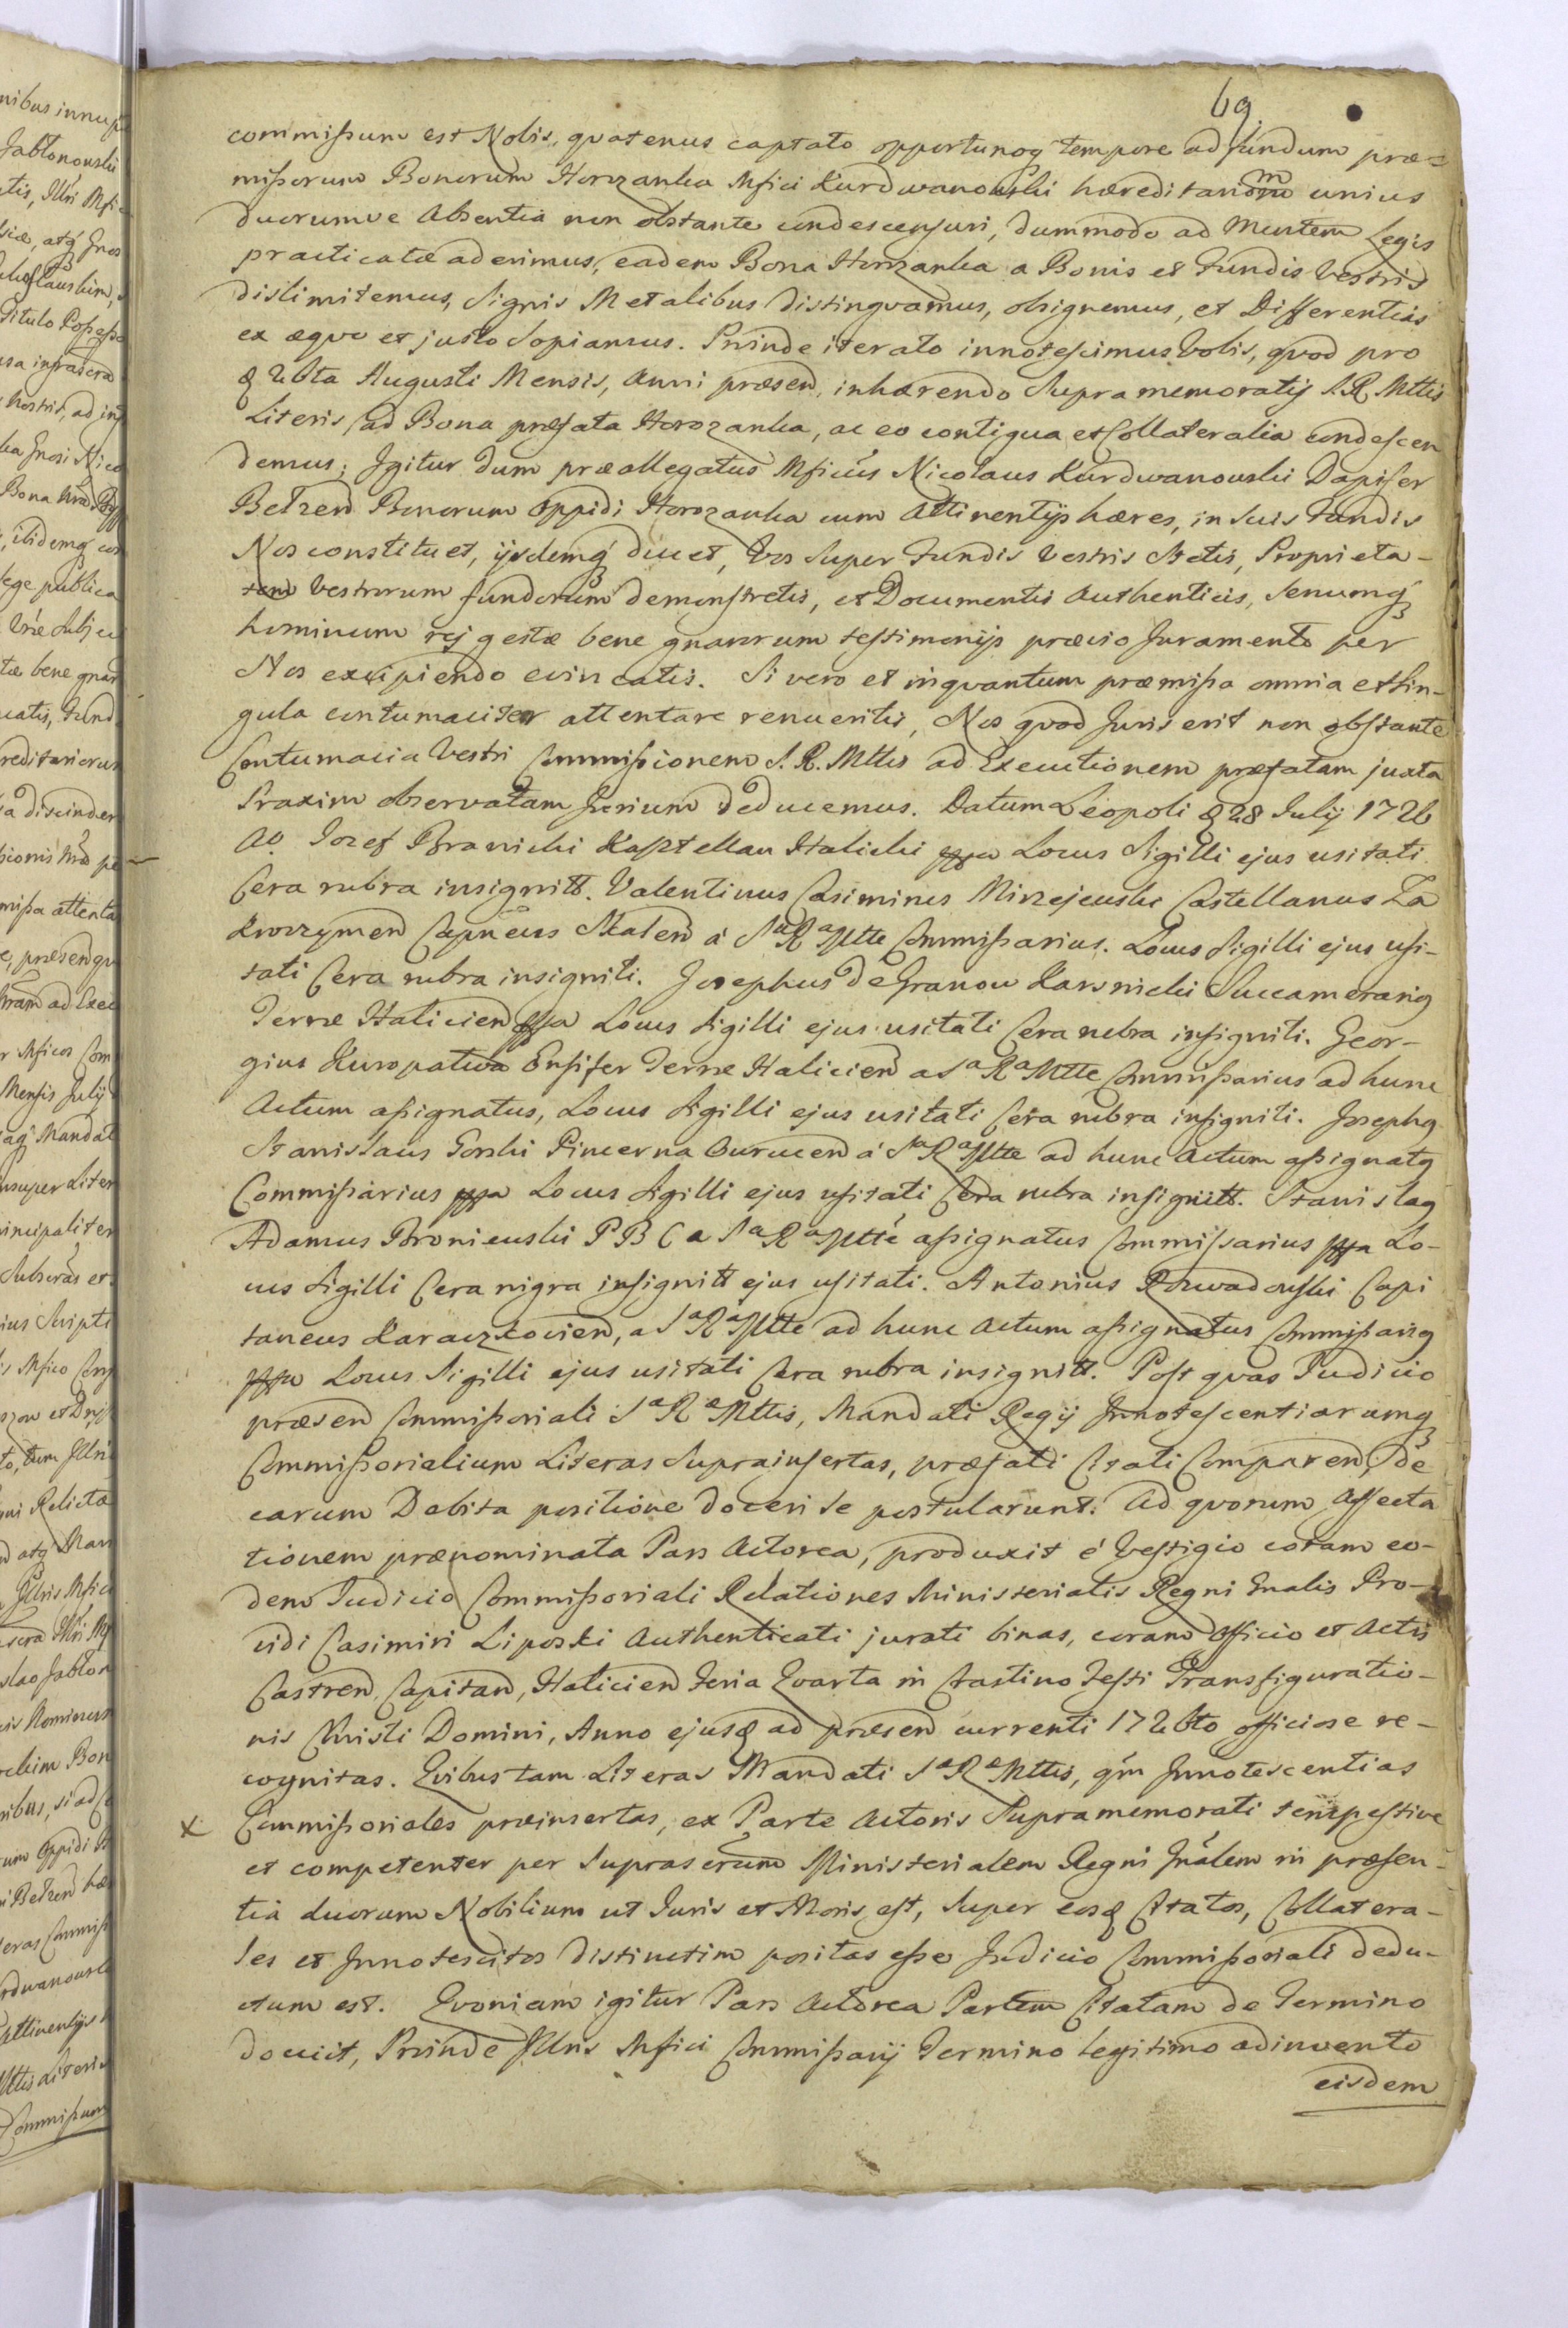 69
commissum est Nobis, qvatenus captato opportunoq tempore ad fundum præ=
missorum Bonorum Horozanka Mfici Kurdwanowski hæreditariorum unius
duorumve Absentia non obstante condescensuri, dummodo ad Mentem Legis
practicatæ aderimus, eadem Bona Horozanka a Bonis et Fundis Vestris
dislimitemus, Signis Metalibus distingvamus, obsignemus, et Differentias
ex æqvo et justo Sopiamus. Proinde iterato innotescimus Vobis, qvod pro
d 26ta Augusti Mensis, Anni præsen, inhærendo Supra memoratis S. R. Mttis
Literis ad Bona præfata Horozanka, ac eo contigua et Collateralia condescen
demus; Igitur dum præallegatus Mficus Nicolaus Kurdwanowski Dapifer
Betzen Bonorum Oppidi Horozanka cum Attinentijs hæres, in suis Fundis
Nos constituet, ijsdemq ducet, Vos Super Fundis Vestris Stetis, Proprieta-
tem Vestrorum fundorum demonstretis, et Documentis Authenticis, Senumq
hominum rej gestæ bene gnarorum testimonijs prævio Juramento per
Nos excipiendo evincatis. Si vero et inqvantum præmissa omnia et Sin-
gula contumaciter attentare renueritis, Nos qvod Juris erit non obstante
Contumacia Vestri Commissionem S. R. Mttis ad Executionem præfatam juxta
Praxim observatam Jurium deducemus. Datum Leopoli d 28 July 1726
Ao. Jozef Branicki Kasztellan Halicki mppa Locus Sigilli ejus usitati
Cera rubra insignitt. Valentinus Casimirus Mirzejewski Castellanus Za
kroczymen Capneus Skalen á SaRaMtte Commissarius. Locus Sigilli ejus usi-
tati Cera rubra insigniti. Josephus de Granow Karsnicki Succamerarig
Terræ Halicien mppa Locus Sigilli ejus usitati Cera rubra insigniti. Geor-
gius Kuropatwa Ensifer Terræ Halicien a SaRaMtte Commissarius ad hunc
Actum assignatus, Locus Sigilli ejus usitati Cera rubra insigniti. Josephg
Stanislaus Gorski Pincerna Owrucen á SaRaMtte ad hunc Actum assignatg
Commissarius mppa Locus Sigilli ejus usitati Cera rubra insignitt. Stanislag
Adamus Broniewski P B C a SaRaMtté assignatus Commissarius mppa Lo-
cus Sigilli Cera nigra insignitt ejus usitati. Antonius Rozwadowski Capi
taneus Karaczkocien, a SaRaMtte ad hunc Actum assignatus Commissarig
mppa Locus Sigilli ejus usitati Cera rubra insignitt. Post qvas Judicio
præsen Commissoriali SaRæMttis, Mandati Regij Innotescentiarumq
Commissorialium Literas Suprainsertas, præfati Citati Comparen, de
earum Debita positione doceri Se postularunt. Ad qvorum Affecta
tionem prænominata Pars Actorea, produxit é Vestigio coram eo-
dem Judicio Commissoriali Relationes Ministerialis Regni Gnalis Pro-
vidi Casimiri Liposki Authenticati jurati binas, coram Officio et Actis
Castren, Capitan, Halicien Feria Qvarta in Crastino Festi Transfiguratio-
nis Christi Domini, Anno ejusd ad præsen currenti 1726to officiose re-
cognitas. Qvibus tam Literas Mandati SaRæMttis, qm Innotescentias
X Commissoriales præinsertas, ex Parte Actoris Supramemorati tempestive
et competenter per Suprascrum Ministerialem Regni Gnalem in præsen-
tia duorum Nobilium ut Juris et Moris est, Super eosd Citatos, Collatera-
les et Innotescitos distinctim positas esse Judicio Commissoriali dedu-
ctum est. Qvoniam igitur Pars Actorea Partem Citatam de Termino
docuit, Proinde Illris Mfici Commissarij Termino legitimo adinvento
eisdem